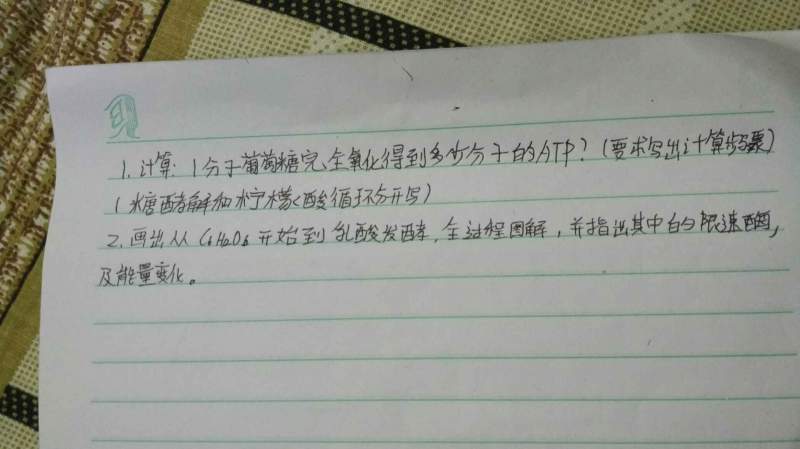 1. 计算: 1分子葡萄糖完全氧化得到多少分子的ATP? (要求写出计算步骤)
(糖酵解和柠檬酸循环分开写)
2. 画出从 C6H12O6 开始到乳酸发酵, 全过程图解, 并指出其中的限速酶,
及能量变化。